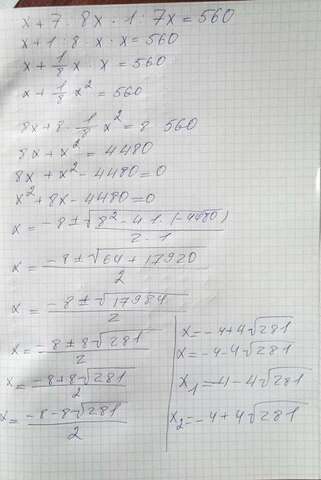 x+7:8x·1:7x=560
x+1:8·x·x=560
x+1/8x·x=560
x+1/8x²=560
8x+8·1/8x²=8 560
8x+x²=4480
8x+x²-4480=0
x²+8x-4480=0
x=-8±√8²-4·1·(-4480)/2·1
x=-8±√64+17920/2
x=-8±√17984/2
x=-8±8√281/2
x=-8+8√281/2
x=-8-8√281/2
x=-4+4√281
x=-4-4√281
x₁=-4-4√281
x₂=-4+4√281